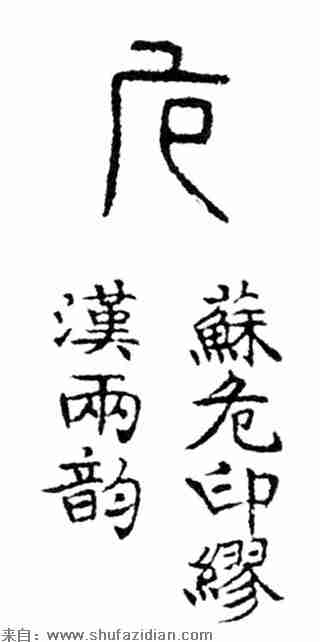 危
蘇危印繆
漢兩韵
来自：www.shufazidian.com